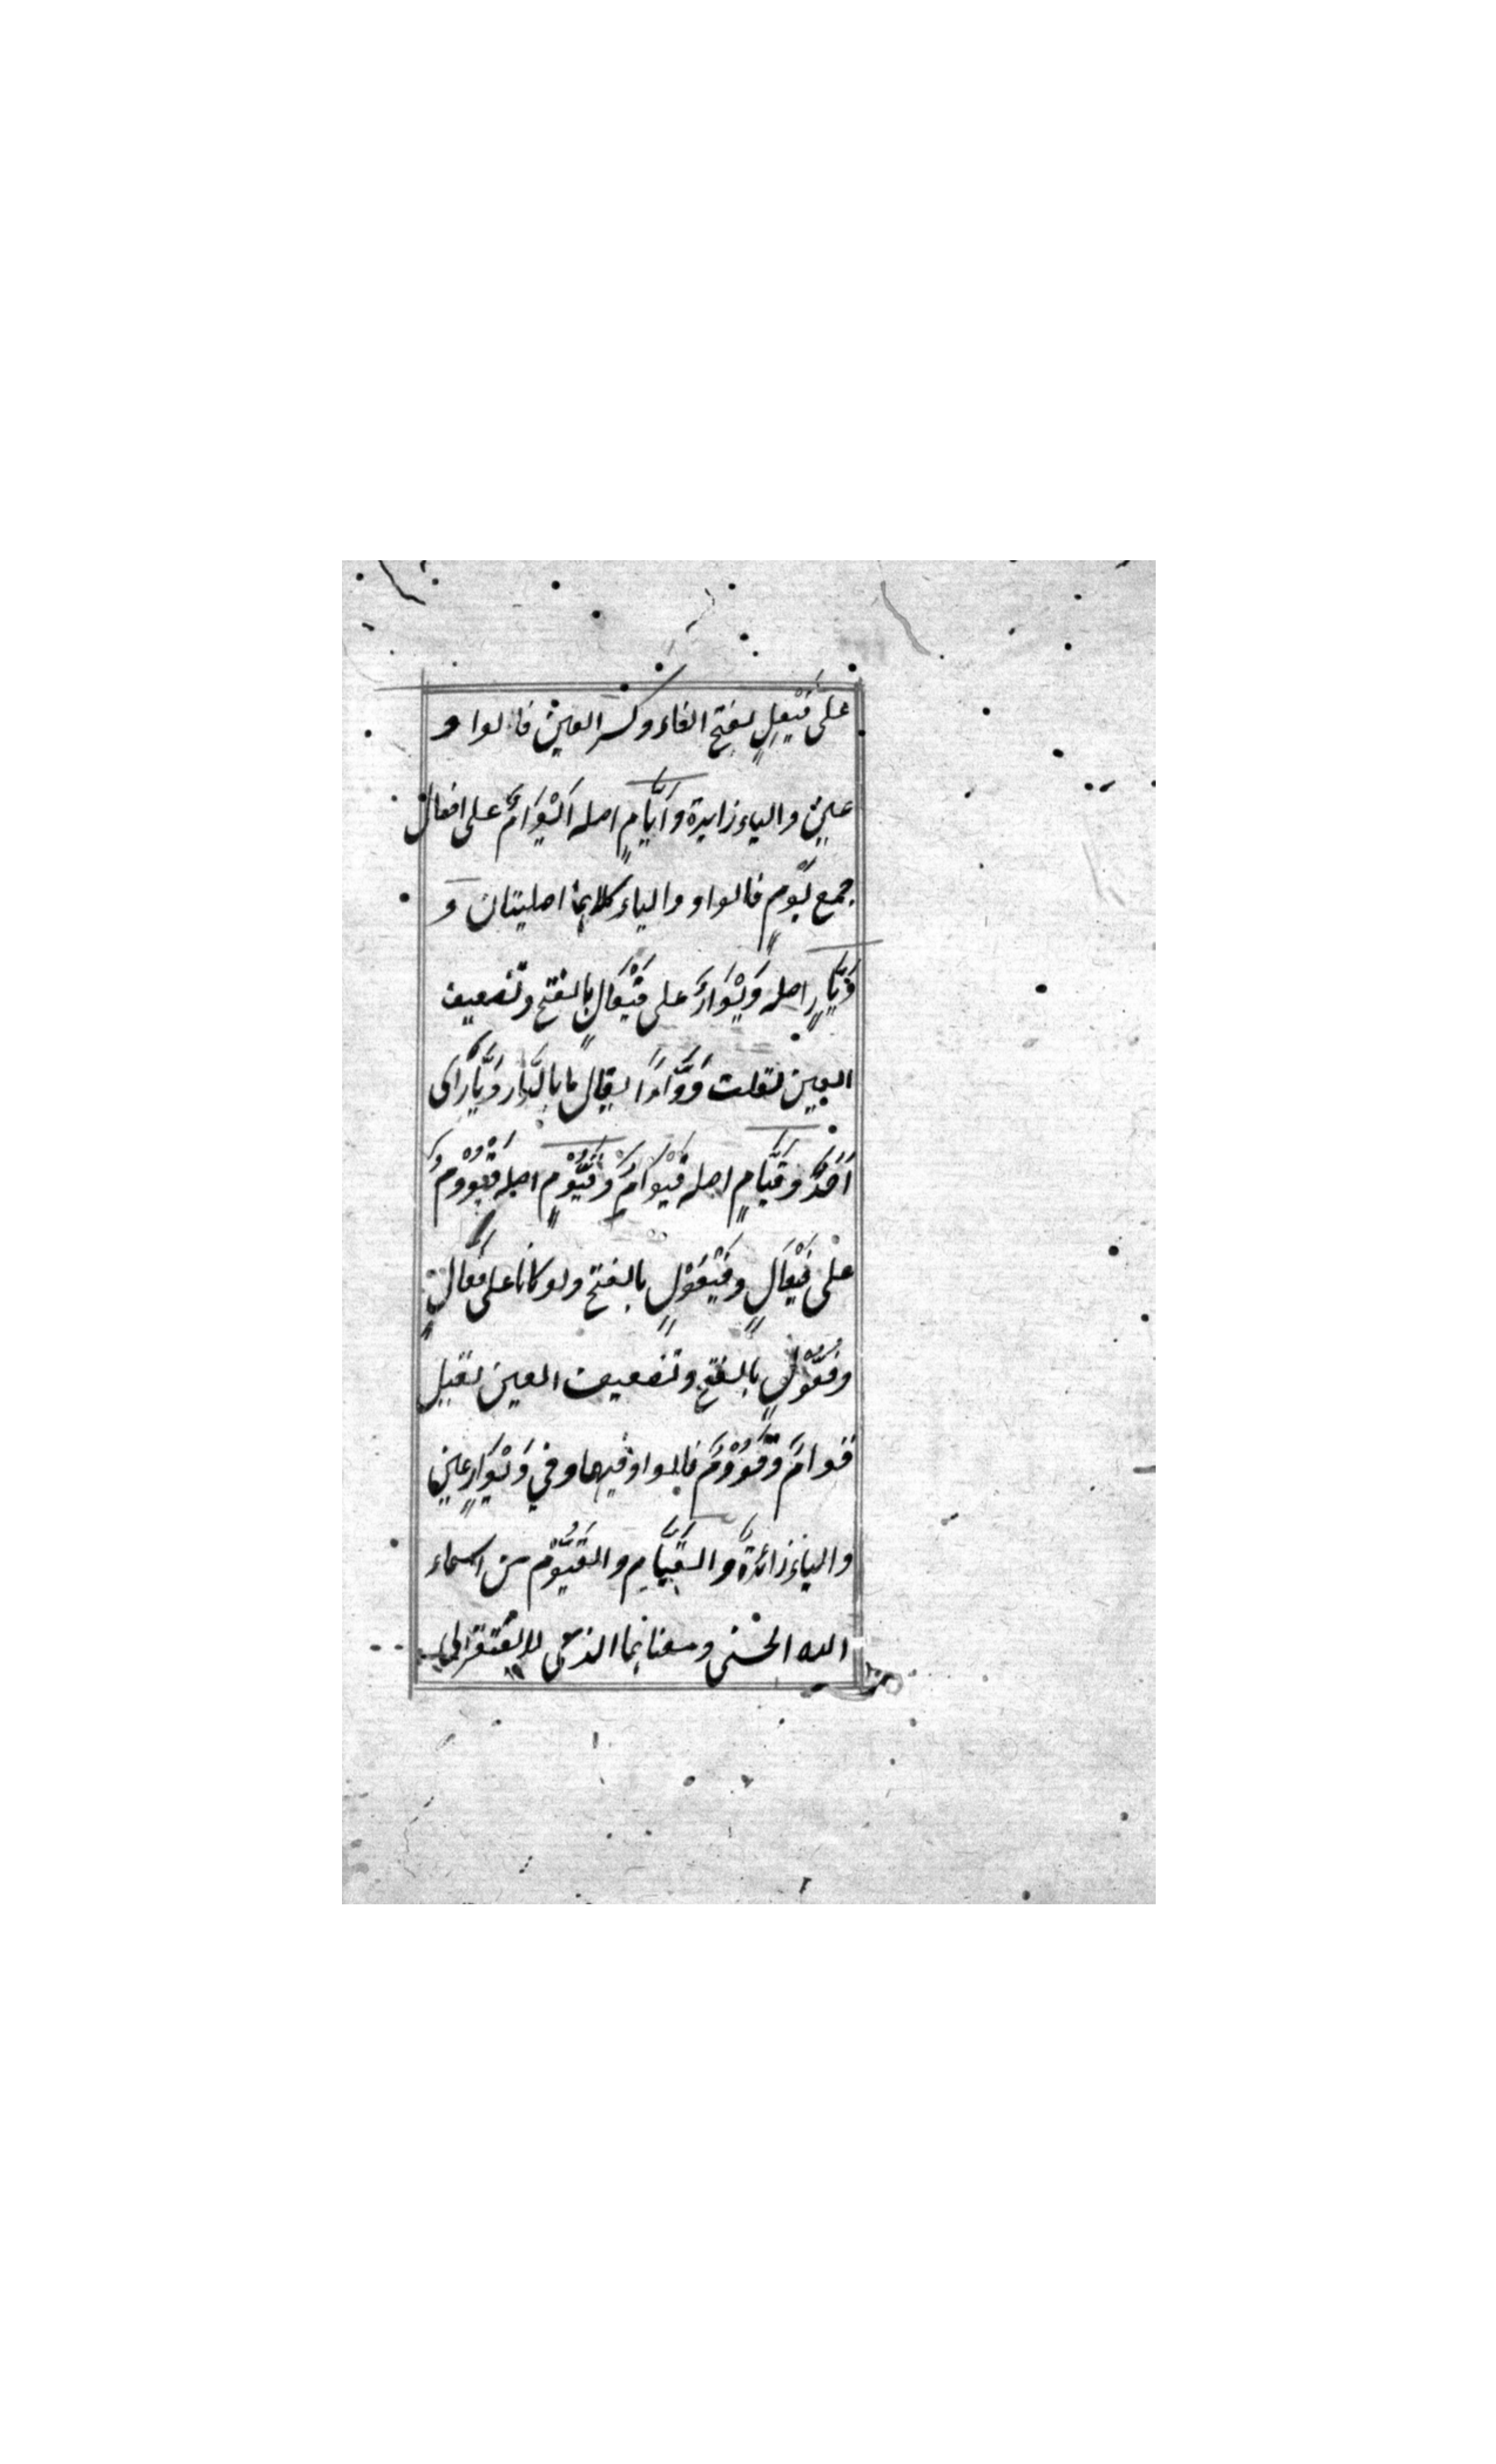 على فَيْعِلٍ بفتح الفاء وكسر العين فالواو
عين والياء زايدة وَاَيَّامٍ اصله اَيْوَامٌ على افعال
جمع يَوْمٍ فالواو والياء كلاهما اصليتان و
دَيَّارٍ اصله دَيْوَارٌ على فَيْعَالٍ بالفتح وتضعيف
العين لقلت دَوَّارًا يقال ما بالدَّار دَيَّارٌ اى
اَحَدٌ وَقَيَّامٍ اصله قَيْوَامٌ وَقَيُّوْمٍ اصله قَيْوُوْمٌ
على فَيْعَالٍ وفَيْعُوْلٍ بالفتح ولو كانا على فَعَّالٍ
وفَعُّوْلٍ بالفتح وتضعيف العين لقيل
قوامٌ وَقَوُّوْمٌ فالواو فيهما وفي دَيْوَارٍ عين
والياء زائدة وَالقَيَّامِ والقَيُّوْمِ من اسماء
الله الحسنى ومعناهما الذى لا يفتقر الى